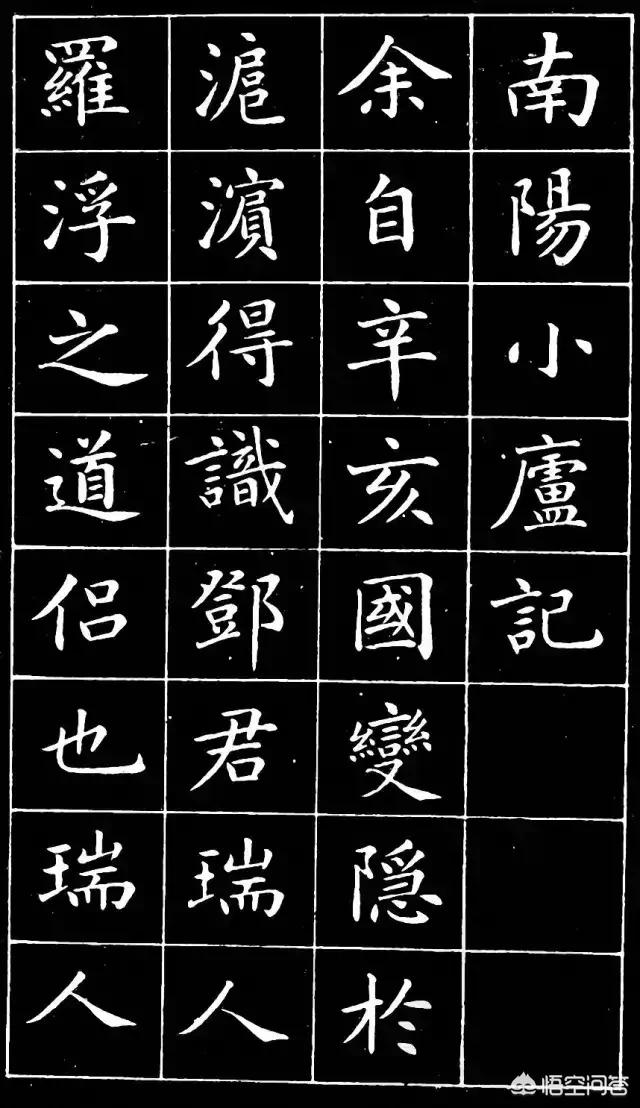 南陽小廬記
余自辛亥國變隱於
滬濵得識鄧君瑞人
羅浮之道侣也瑞人
悟空问答